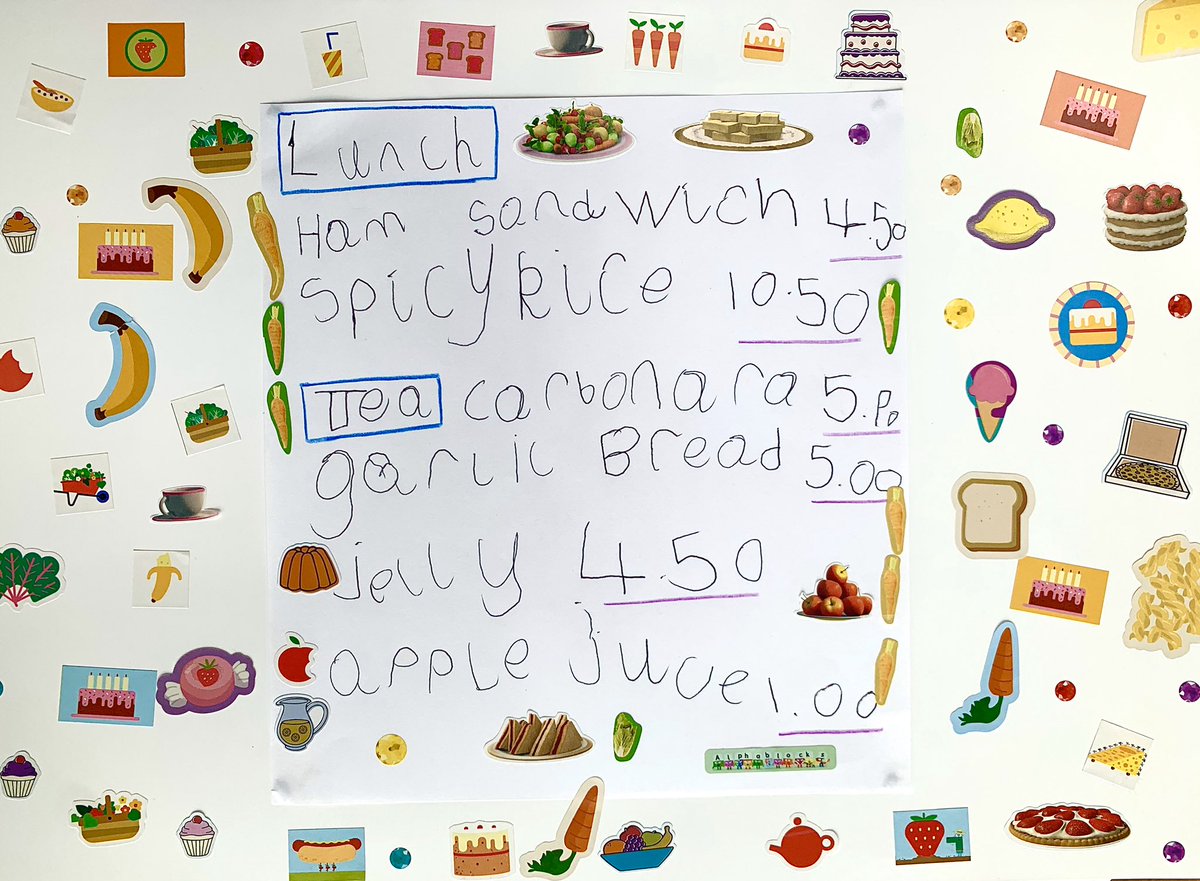 Lunch
Ham sandwich 4.50
spicy Rice 10.50
Tea carbonara
garlic Bread 5.00
jelly 4.50
apple juice 1.00
Alphablocks